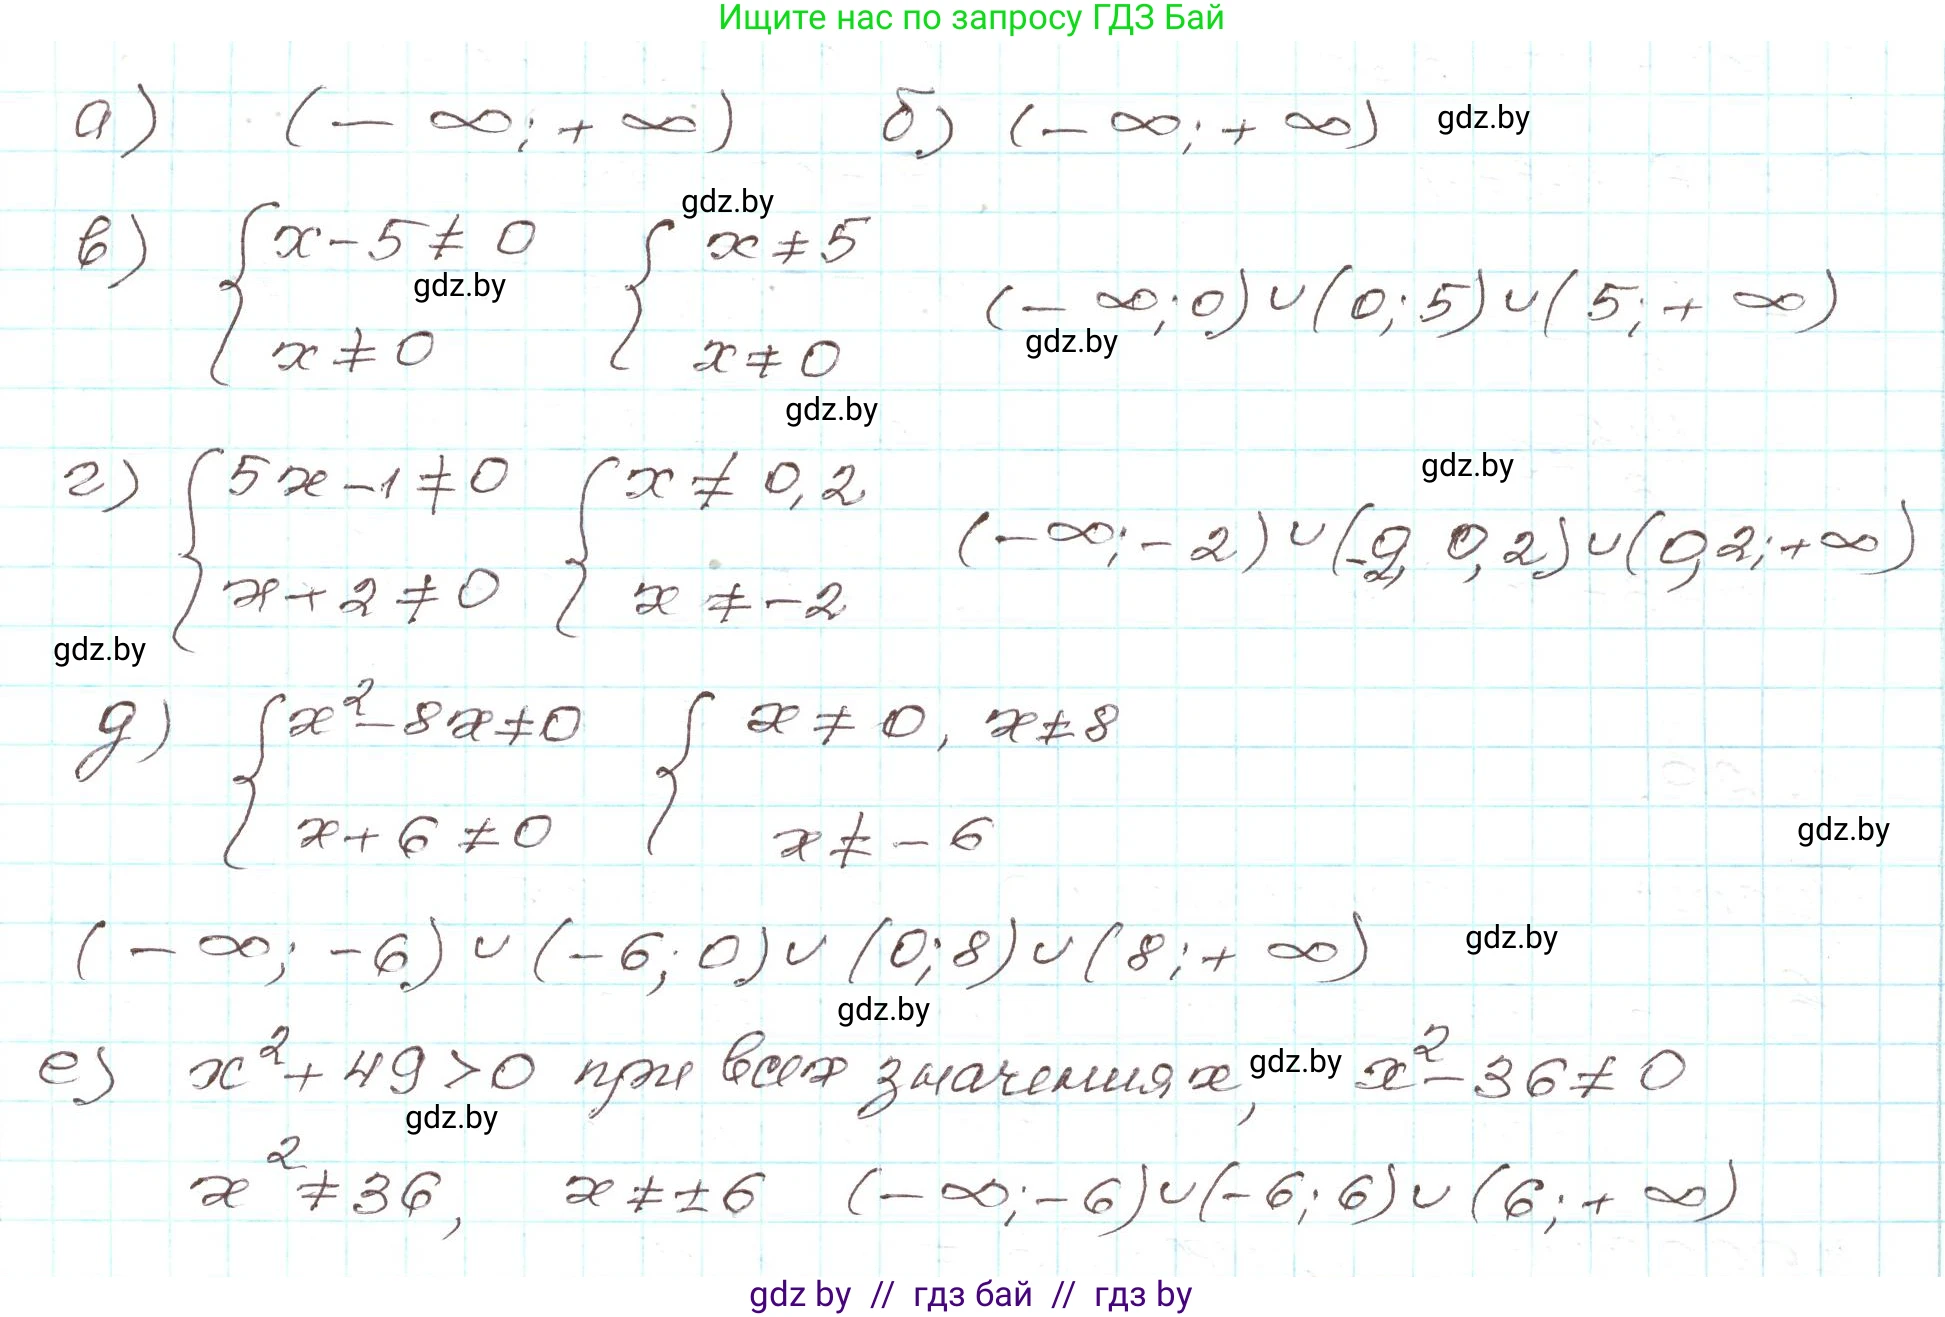 Ищите нас по запросу ГДЗ Бай
а) (− ∞; + ∞) б) (− ∞; + ∞) gdz.by
gdz.by
в) { x − 5 ≠ 0 { x ≠ 5
gdz.by
(− ∞; 0) ∪ (0; 5) ∪ (5; + ∞)
gdz.by
x ≠ 0 x ≠ 0
gdz.by
gdz.by
г) { 5x − 1 ≠ 0 { x ≠ 0,2
(−∞; −2) ∪ (−2, 0,2) ∪ (0,2; +∞)
x + 2 ≠ 0 x ≠ −2
gdz.by
д) { x² − 8x ≠ 0 { x ≠ 0, x ≠ 8
x + 6 ≠ 0 x ≠ − 6
gdz.by
(− ∞; −6) ∪ (−6; 0) ∪ (0; 8) ∪ (8; + ∞) gdz.by
gdz.by
е) x² + 49 > 0 при всех значениях x, gdz.by x² − 36 ≠ 0
gdz.by
x² ≠ 36, x ≠ ± 6 (− ∞; −6) ∪ (−6; 6) ∪ (6; + ∞)
gdz by // гдз бай // гдз by